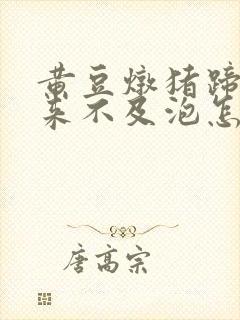 黄豆燉猪蹄
来不及泡怎
唐高宗